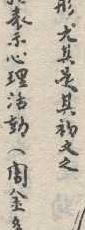 形尤其是其初文之
表示心理活動（周金多